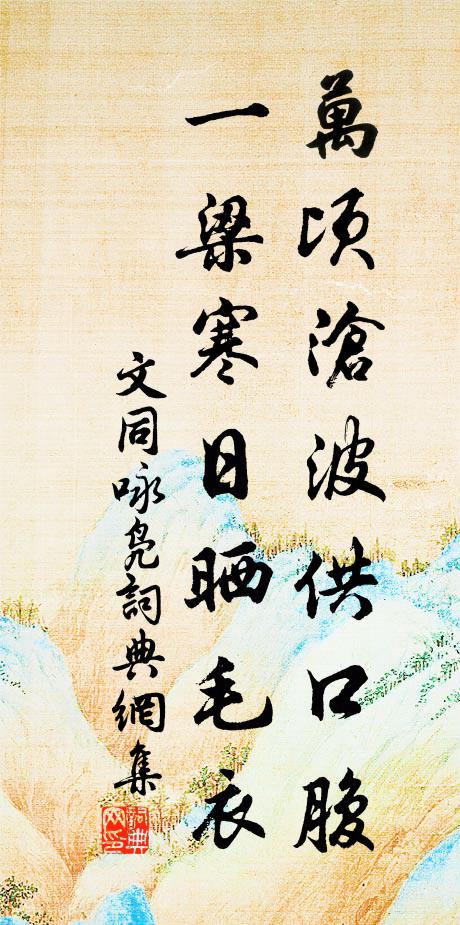 萬頃滄波供口腹
一梁寒日晒毛衣
文同咏凫詞典網集
詞典網印